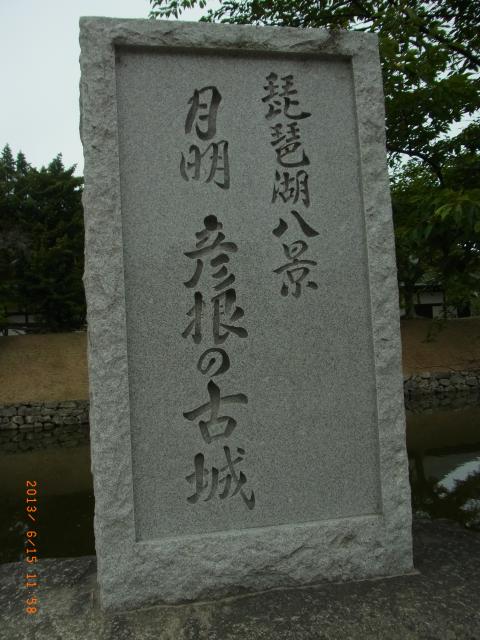 琵琶湖八景
月明 彦根の古城
2013/ 6/15 11:58